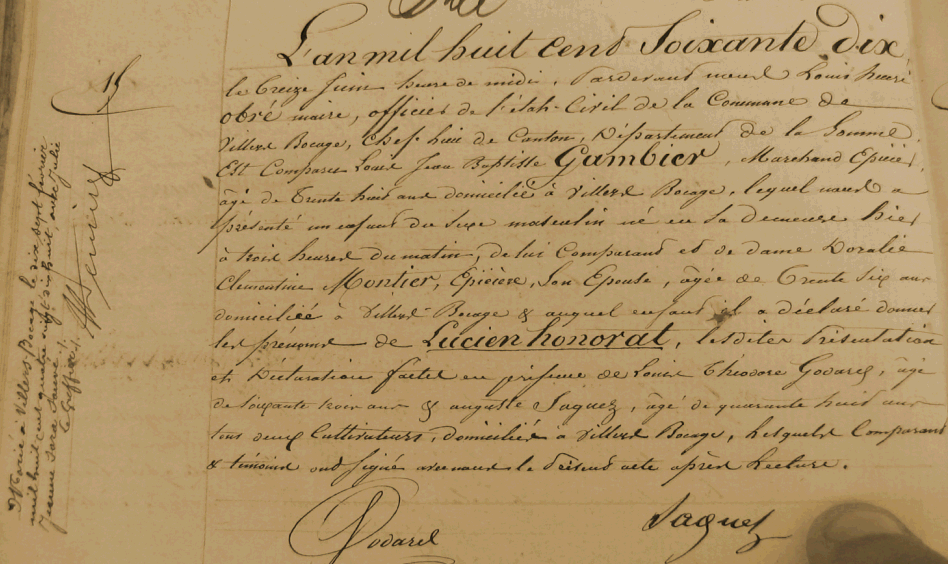 L'an mil huit cent Soixante dix,
le treize Juin heure de midi, Pardevant nous Louis honoré
obré maire, officier de l'état-Civil de la Commune de
Villers Bocage, Chef-lieu de Canton, Département de la Somme,
Est Comparu Louis Jean Baptiste Gambier, Marchand Epicier
âgé de trente huit ans domicilié à Villers Bocage, lequel nous a
présenté un enfant du sexe masculin né en sa demeure hier
à trois heures du matin, de lui Comparant et de dame Doralie
Clementine Montier, Epicière, Son Epouse, agée de trente six ans
domiciliée à Villers Bocage & auquel enfant il a déclaré donner
les prénoms de Lucien honorat, lesdites Présentation
et Déclaration faites en présence de Louis Théodore Godarel, âgé
de soixante trois ans & auguste Jaquez, âgé de quarante huit ans
tous deux Cultivateurs, domiciliés à Villers Bocage, Lesquels Comparant
& témoins ont signé avec nous le Présent acte après Lecture.
Godarel
Jaquez
15
Marié à Villers Bocage le dix sept février
mil huit cent quatre vingt dix huit, avec Julie
Jeanne
Le Greffier